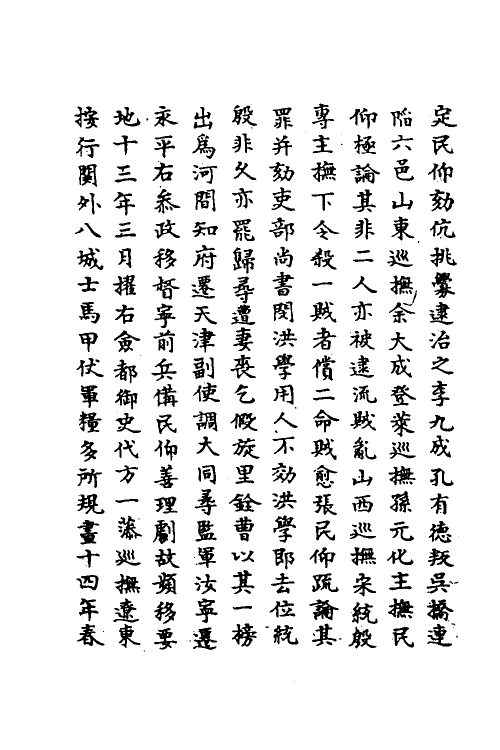 定民仰劾伉挑釁逮治之李九成孔有德叛吳橋連
陷六邑山東巡撫余大成登萊巡撫孫元化主撫民
仰極論其非二人亦被逮流賊亂山西巡撫宋統殷
專主撫下令殺一賊者償二命賊愈張民仰疏論其
罪并劾吏部尚書閔洪學用人不効洪學即去位統
殷非久亦罷歸尋遭妻喪乞假旋里銓曹以其一榜
出爲河間知府遷天津副使調大同尋監軍汝寧遷
永平右叅政移督寧前兵備民仰善理劇故頻移要
地十三年三月擢右僉都御史代方一藻巡撫遼東
按行関外八城士馬甲仗軍糧多所規畫十四年春